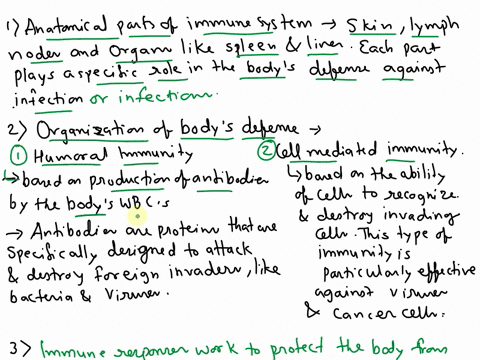 1) Anatomical parts of immune system → Skin, lymph
nodes and Organs like spleen & liver. Each part
plays a specific role in the body's defense against
infection or infections.
2) Organization of body's defense →
① Humoral Immunity
↳ based on production of antibodies
by the body's WBC's
→ Antibodies are proteins that are
specifically designed to attack
& destroy foreign invaders, like
bacteria & viruses.
② Cell mediated immunity.
↳ based on the ability
of cells to recognize
& destroy invading
cells. This type of
immunity is
particularly effective
against viruses
& cancer cells.
3) Immune responses work to protect the body from